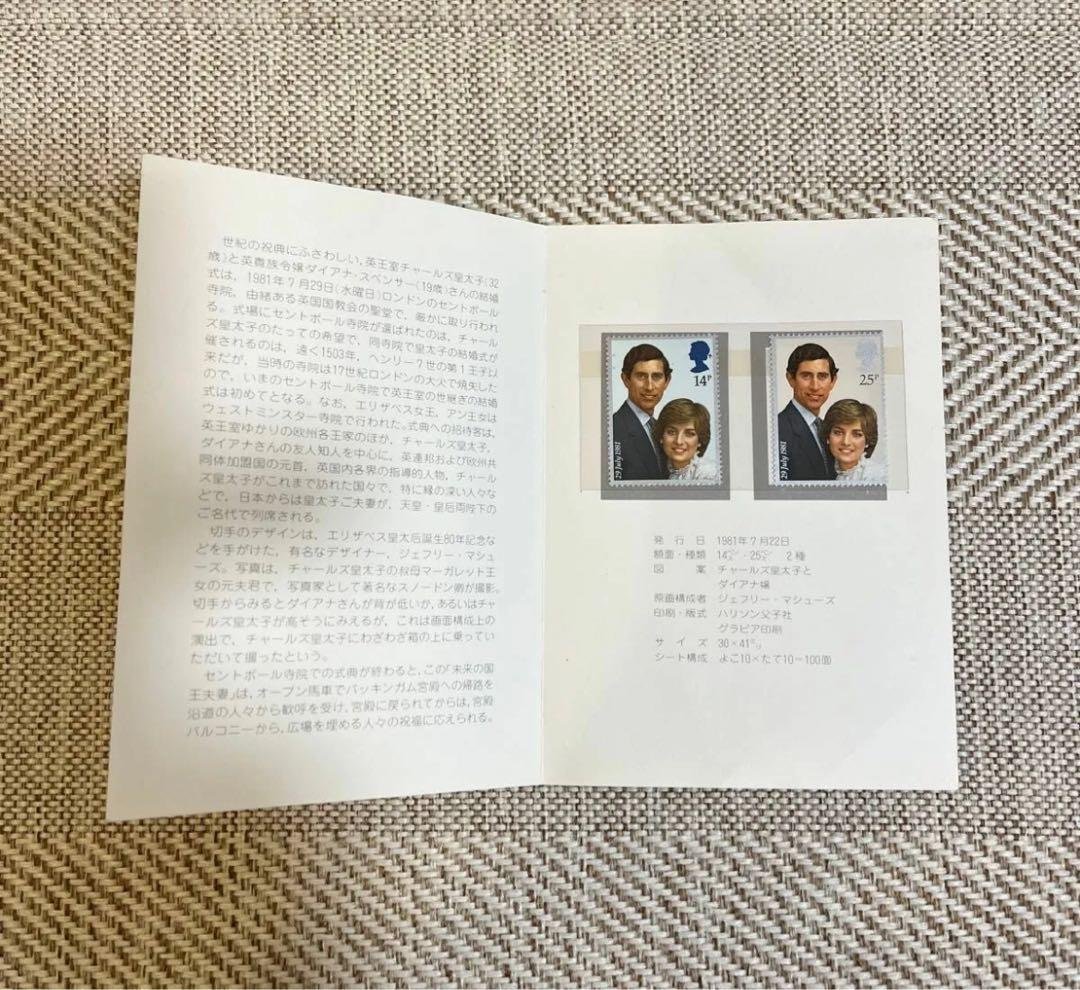 世紀の祝典にふさわしい，英王室チャールズ皇太子(32
歳)と英貴族令嬢ダイアナ・スペンサー(19歳)さんの結婚
式は，1981年7月29日(水曜日)ロンドンのセントポール
寺院，由緒ある英国国教会の聖堂で，厳かに取り行われ
る。式場にセントポール寺院が選ばれたのは，チャール
ズ皇太子のたっての希望で，同寺院で皇太子の結婚式が
催されるのは，遠く1503年，ヘンリー7世の第1王子以
来だが，当時の寺院は17世紀ロンドンの大火で焼失した
ので，いまのセントポール寺院で英王室の世継ぎの結婚
式は初めてとなる。なお，エリザベス女王，アン王女は
ウェストミンスター寺院で行われた。式典への招待客は，
英王室ゆかりの欧州各王家のほか，チャールズ皇太子，
ダイアナさんの友人知人を中心に，英連邦および欧州共
同体加盟国の元首，英国内各界の指導的人物，チャール
ズ皇太子がこれまで訪れた国々で，特に縁の深い人々な
どで，日本からは皇太子ご夫妻が，天皇・皇后両陛下の
ご名代で列席される。
切手のデザインは，エリザベス皇太后誕生80年記念な
どを手がけた，有名なデザイナー，ジェフリー・マシュ
ーズ。写真は，チャールズ皇太子の叔母マーガレット王
女の元夫君で，写真家として著名なスノードン卿が撮影。
切手からみるとダイアナさんが背が低いか，あるいはチャ
ールズ皇太子が高そうにみえるが，これは画面構成上の
演出で，チャールズ皇太子にわざわざ箱の上に乗ってい
ただいて撮ったという。
セントポール寺院での式典が終わると，この「未来の国
王夫妻」は，オープン馬車でバッキンガム宮殿への帰路を
沿道の人々から歓呼を受け，宮殿に戻られてからは，宮殿
バルコニーから，広場を埋める人々の祝福に応えられる。
14P
29 July 1981
25P
29 July 1981
発行日 1981年7月22日
額面・種類 14ペンス・25ペンス 2種
図案 チャールズ皇太子と
ダイアナ嬢
原画構成者 ジェフリー・マシューズ
印刷・版式 ハリソン父子社
グラビア印刷
サイズ 30×41ミリ
シート構成 よこ10×たて10＝100面